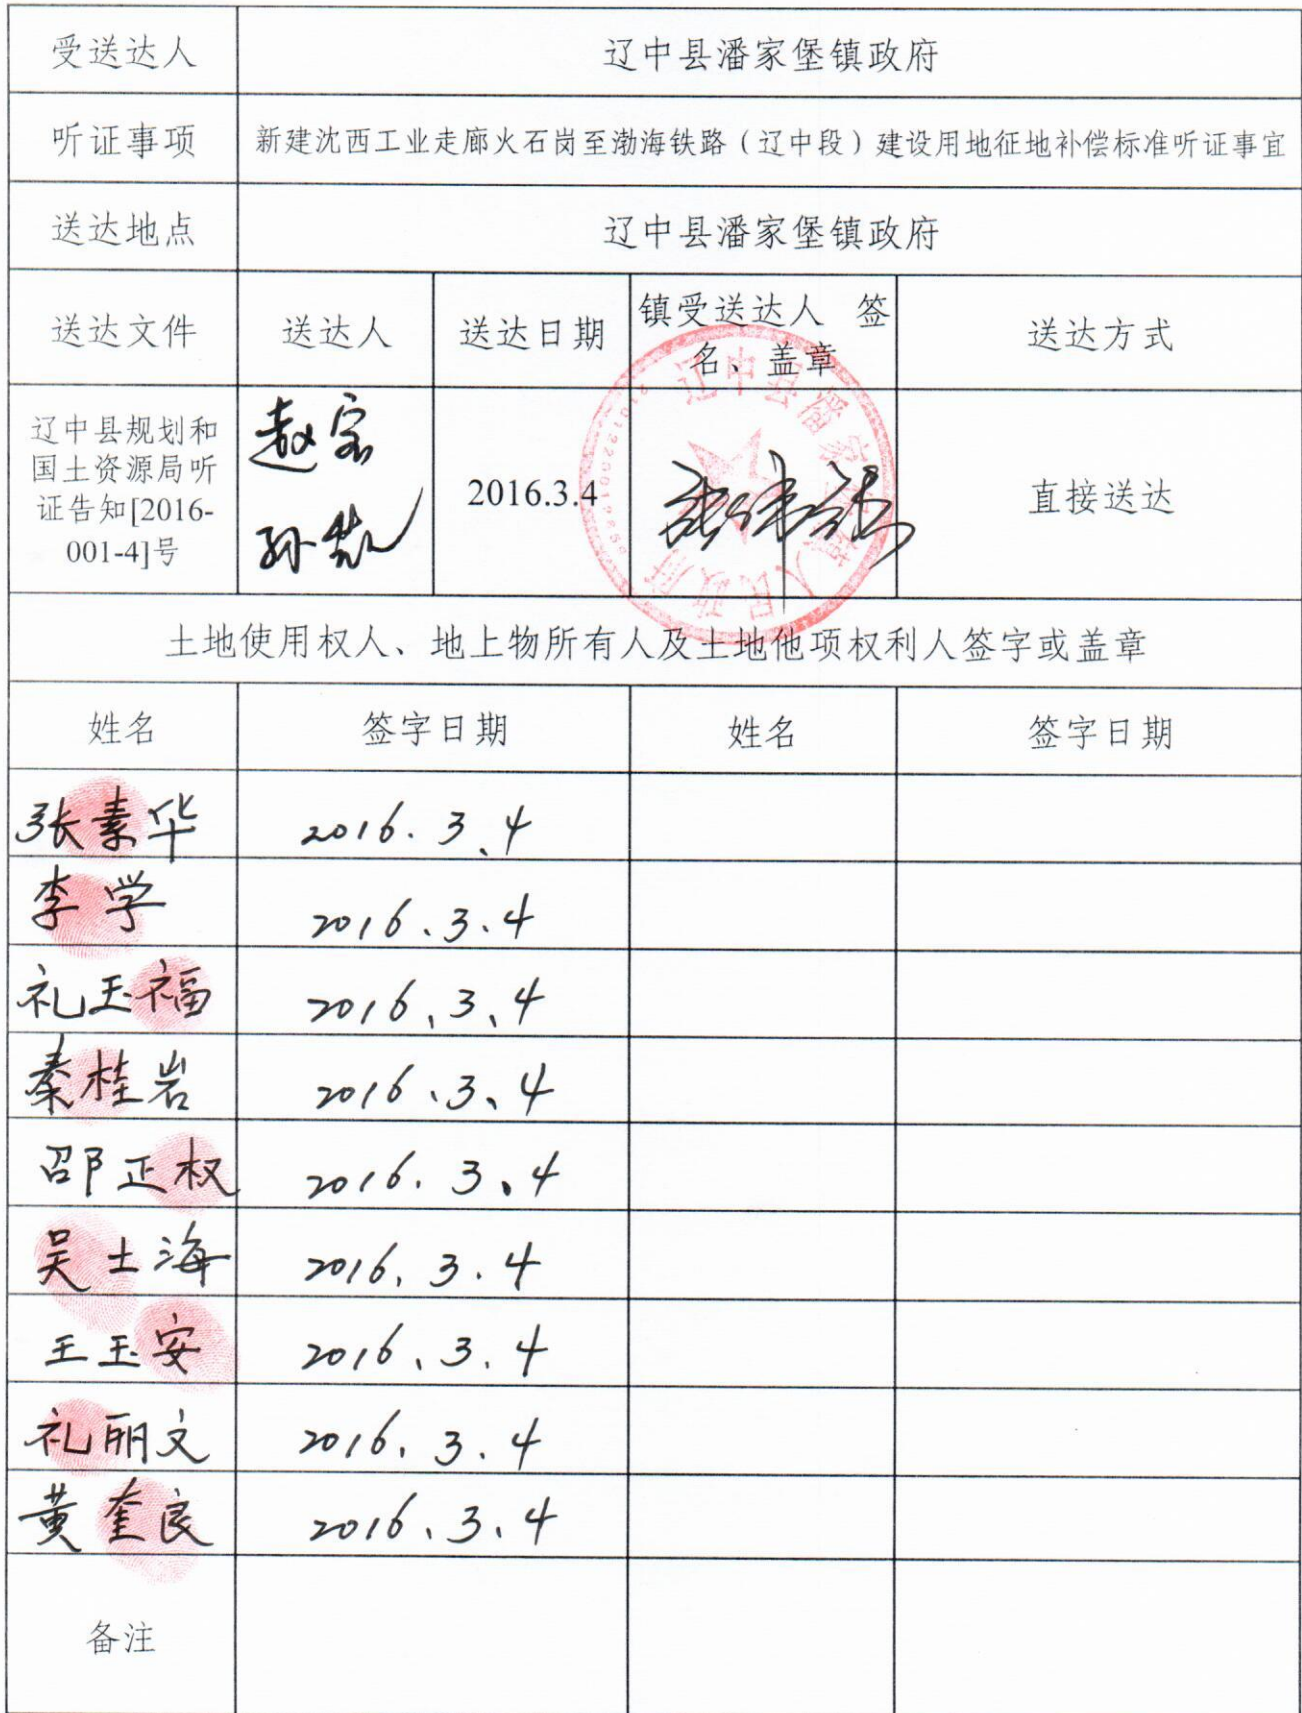 受送达人 辽中县潘家堡镇政府
听证事项 新建沈西工业走廊火石岗至渤海铁路（辽中段）建设用地征地补偿标准听证事宜
送达地点 辽中县潘家堡镇政府
送达文件 送达人 送达日期 镇受送达人 签名、盖章 送达方式
辽中县规划和
国土资源局听
证告知[2016-
001-4]号
赵宝
孙凯
2016.3.4
辽中县潘家堡镇人民政府
直接送达
土地使用权人、地上物所有人及土地他项权利人签字或盖章
姓名 签字日期 姓名 签字日期
张素华 2016.3.4
李学 2016.3.4
礼玉福 2016.3.4
秦桂岩 2016.3.4
邵正权 2016.3.4
吴士海 2016.3.4
王玉安 2016.3.4
礼丽文 2016.3.4
黄奎良 2016.3.4
备注